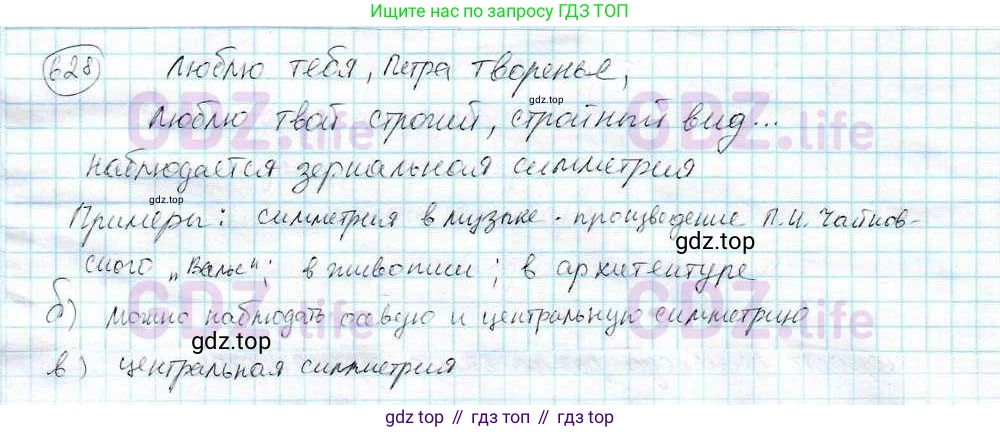 Ищите нас по запросу ГДЗ ТОП
628 Люблю тебя, Петра творенье,
gdz.top
Люблю твой строгий, стройный вид...
GDZ.life GDZ.life
наблюдается зеркальная симметрия
gdz.top
Примеры: симметрия в музыке - произведение П.И. Чайков-
gdz.top
ского „Вальс“; в живописи; в архитектуре
GDZ.life GDZ.life
б) можно наблюдать осевую и центральную симметрию
gdz.top
в) центральная симметрия
gdz top // гдз топ // gdz.top